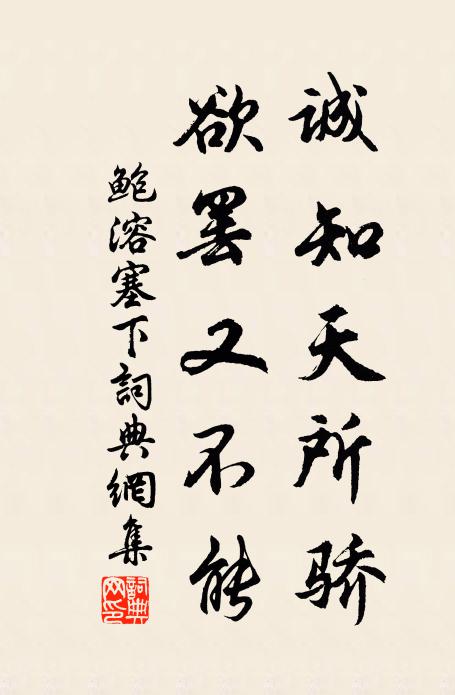 诚知天所骄
欲罢又不能
鲍溶塞下詞典網集
詞典网印